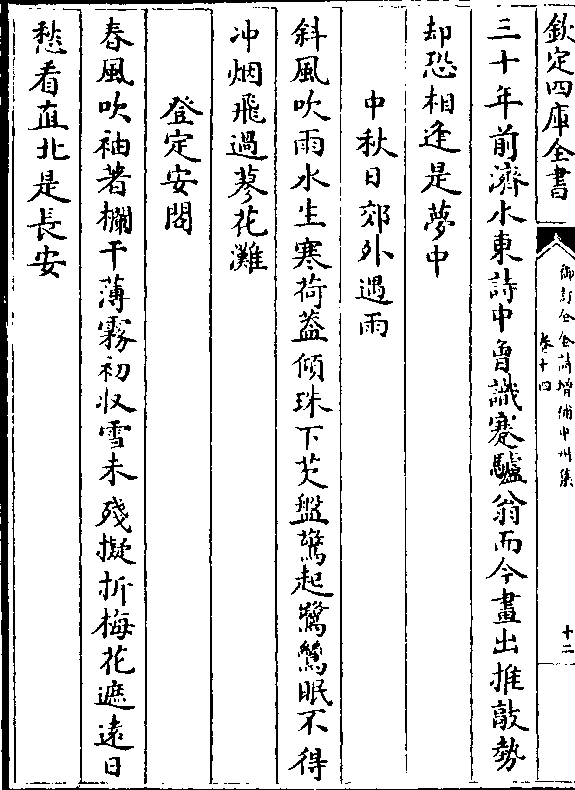 欽定四庫全書
御訂全金詩增補中州集
卷十四
十二
三十年前濟水東詩中曾識蹇驢翁而今畫出推敲勢
却恐相逢是夢中
中秋日郊外遇雨
斜風吹雨水生寒荷葢傾珠下芡盤驚起鷺鶿眠不得
冲烟飛過蓼花灘
登定安閣
春風吹袖著欄干薄霧初收雪未殘擬折梅花遮遠目
愁看直北是長安